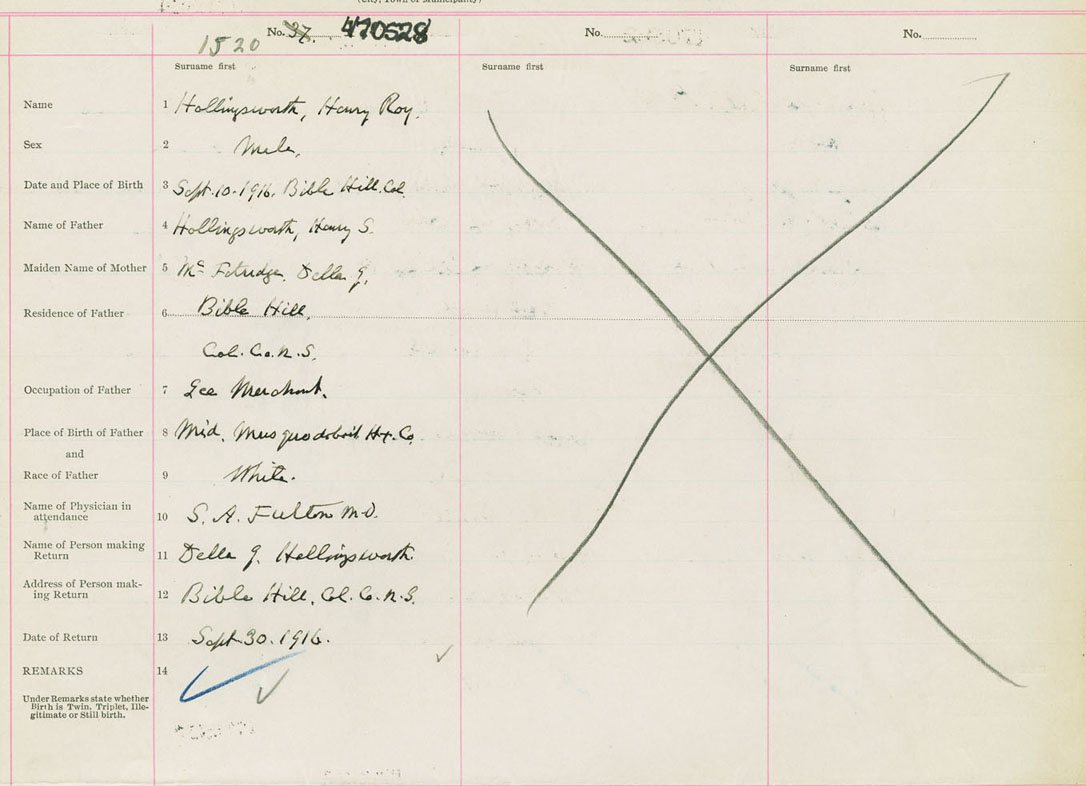 (City, Town or Municipality)
No. 37. 470528 No. No.
1520
Surname first Surname first Surname first
Name 1 Hollingsworth, Henry Roy.
Sex 2 Male.
Date and Place of Birth 3 Sept. 10. 1916. Bible Hill. Col.
Name of Father 4 Hollingsworth, Henry S.
Maiden Name of Mother 5 Mc Fetridge. Della G.
Residence of Father 6 Bible Hill.
Col. Co. N.S.
Occupation of Father 7 Merchant.
Place of Birth of Father 8 Mid. Musquodoboit Hx. Co.
and
Race of Father 9 White.
Name of Physician in
attendance 10 S. A. Fulton M.D.
Name of Person making
Return 11 Della G. Hollingsworth.
Address of Person mak-
ing Return 12 Bible Hill, Col. Co. N.S.
Date of Return 13 Sept. 30. 1916.
REMARKS 14
Under Remarks state whether
Birth is Twin, Triplet, Ille-
gitimate or Still birth.